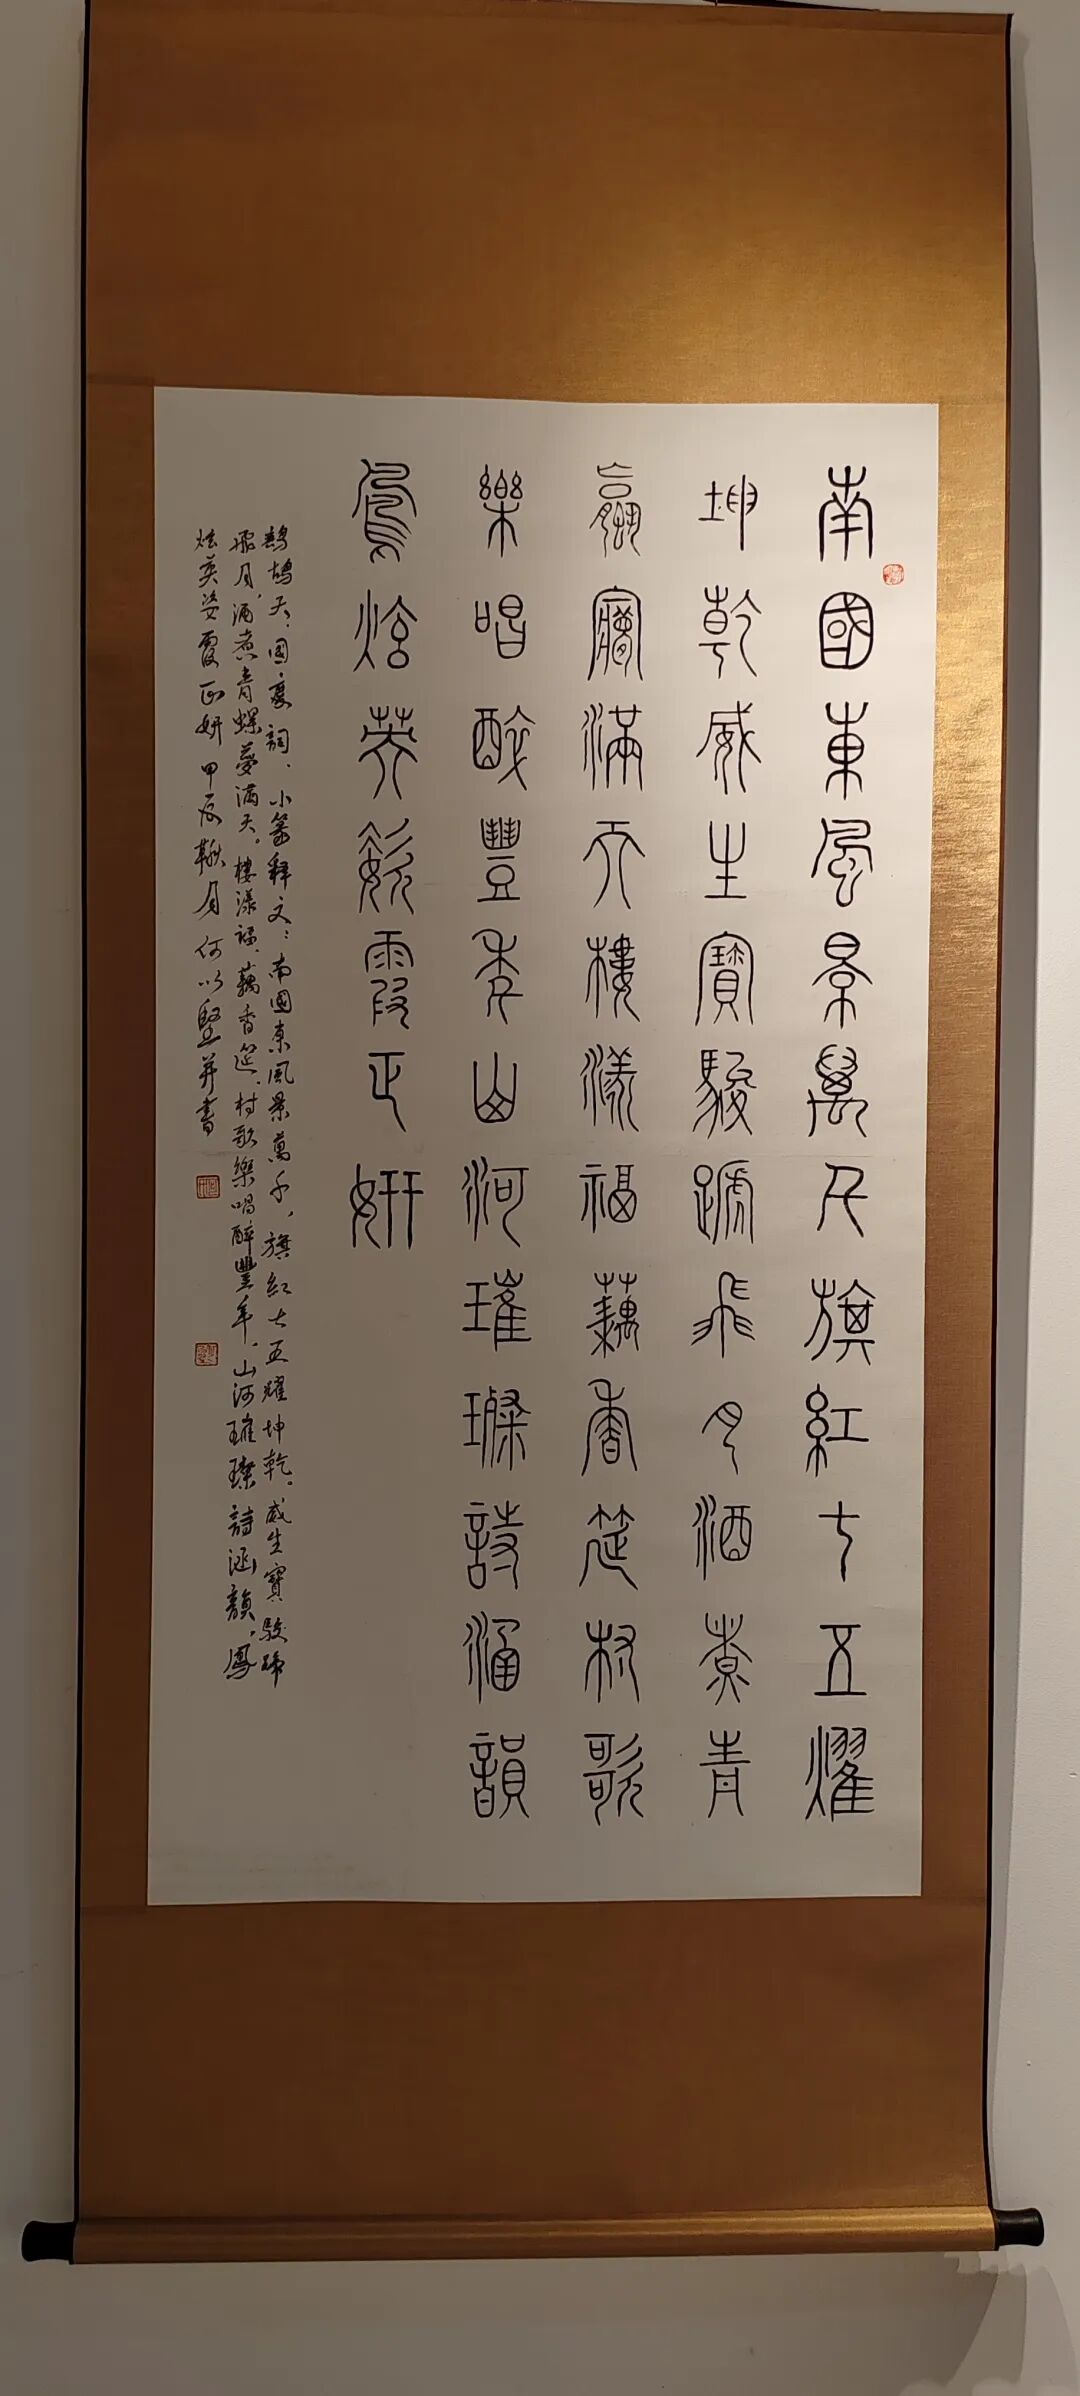 南國東風景萬千旗紅七五耀
坤乾威生寶駿號飛月酒煮青
蠃夢滿天樓漾福藕香筵村歌
樂唱醉豐年山河璀璨詩涵韻
鳳炫英姿霞正妍
鷓鴣天、國慶詞、小篆釋文：南國東風景萬千，旗紅七五耀坤乾。威生寶駿號
飛月，酒煮青螺夢滿天。樓漾福、藕香筵、村歌樂唱醉豐年、山河璀璨詩涵韻，鳳
炫英姿霞正妍 甲辰鞦月何以堅并書